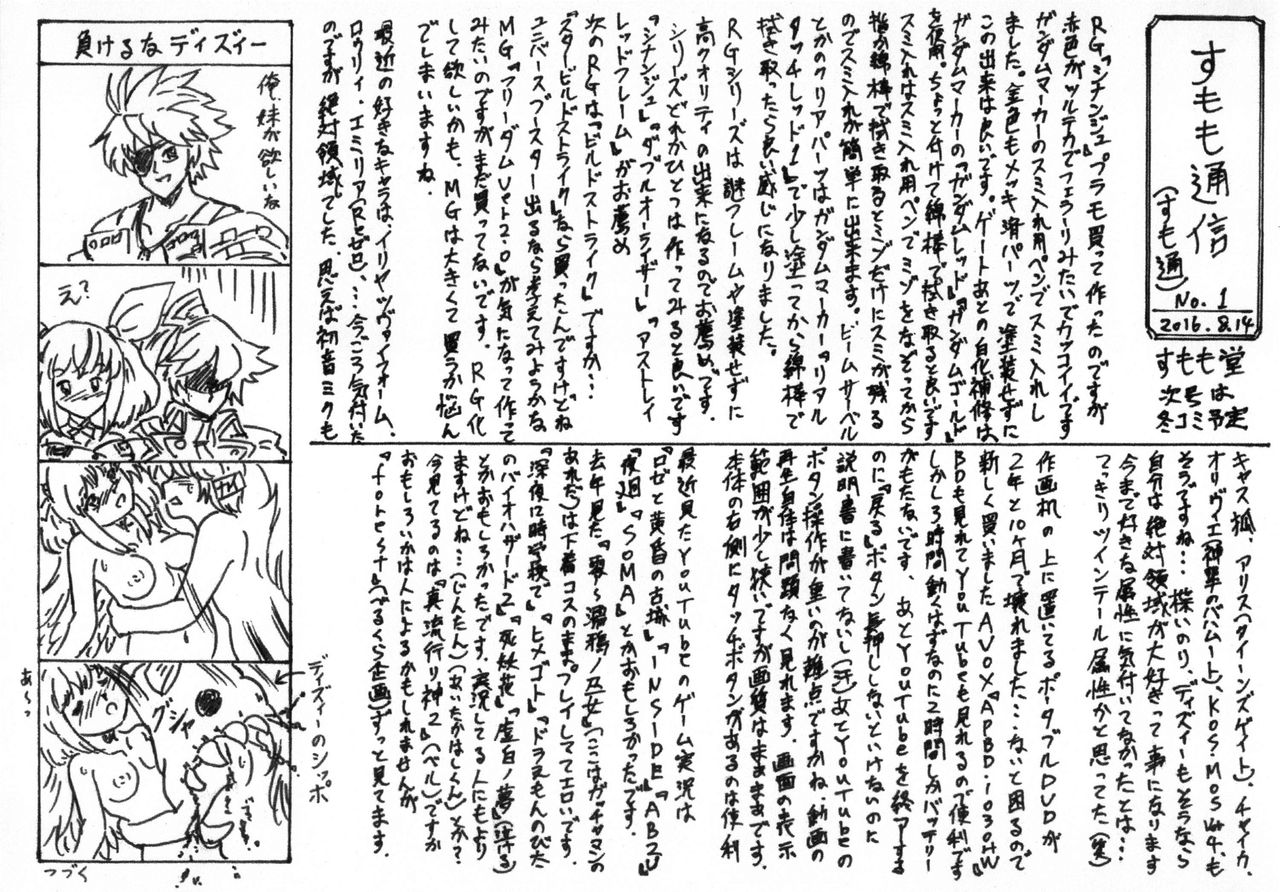 すもも通信
(すも通)
No.1
2016.8.14
すもも堂
次号は
冬コミ予定
RG『シナンジュ』プラモ買って作ったのですが
赤色がツルテカでフェラーリみたいでカッコイイです
ガンダムマーカーのスミ入れ用ペンでスミ入れし
ました。金色もメッキ済パーツで塗装せずに
この出来は良いです。ゲートあとの白化補修は、
ガンダムマーカーの『ガンダムレッド』『ガンダムゴールド』
を使用。ちょっと付けて綿棒で拭き取ると良いです
スミ入れはスミ入れ用ペンでミゾをなぞってから
指か綿棒で拭き取るとミゾだけにスミが残る
のでスミ入れが簡単に出来ます。ビームサーベル
とかのクリアパーツはガンダムマーカー『リアル
タッチレッド1』で少し塗ってから綿棒で
拭き取ったら良い感じになりました。
RGシリーズは謎フレームや塗装せずに
高クオリティの出来になるのでお薦めです。
シリーズどれかひとつは作ってみると良いです
『シナンジュ』『ダブルオーライザー』『アストレイ
レッドフレーム』がお薦め
次のRGは『ビルドストライク』ですか…
『スタービルドストライク』なら買ったんですけどね
ユニバースブースター出るなら考えてみようかな
MG『フリーダムVer2.0』が気になって作って
みたいのですがまだ買ってないです。RG化
して欲しいかも、MGは大きくて買うか悩ん
でしまいますね。
最近の好きなキャラは、イリヤ・ツヴァイフォーム、
ロウリィ、エミリア(Reゼロ)…今ごろ気付いた
のですが絶対領域でした、思えば初音ミクも
キャス狐、アリス(クイーンズゲイト)、チャイカ、
オリヴィエ(神撃のバハムート)、KOS-MOS Ver4、も
そうですね…楪いのり、ディズィーもそうなら
自分は絶対領域が大好きって事になります
今まで好きな属性に気付いてなかったとは…
てっきりツインテール属性かと思ってた(笑)
作画机の上に置いてるポータブルDVDが
2年と10ヶ月で壊れました…ないと困るので
新しく買いました AVOX『APBD-1030HW』
BDも見れてYouTubeも見れるので便利です
しかし3時間動くはずなのに2時間しかバッテリー
がもたないです、あとYouTubeを終了するま
のに『戻る』ボタン長押ししないといけないのに
説明書に書いてないし(汗)あとYouTubeの
ボタン操作が重いのが難点ですかね、動画の
再生自体は問題なく見れます。画面の表示
範囲が少し狭いですが画質はまあまあです。
本体の右側にタッチボタンがあるのは便利
最近見たYouTubeのゲーム実況は
『ロゼと黄昏の古城』『INSIDE』『ABZU』
『夜廻』『SOMA』とかおもしろかったです。
去年見た『零~濡鴉ノ巫女』(ここはガッチャマンの
あれだ)は下着コスのまま。プレイしててエロいです。
『深夜に時学校で』『ヒメゴト』『ドラえもんのびた
のバイオハザード2』『死妖花』『虚白ノ夢』(泣ける)
とかおもしろかったです。実況してる人にもより
ますけどね…(じんたん)(あいたかはしくん)とか?
今見てるのは『真流行り神2』(べル)ですか
おもしろいかは人によるかもしれませんが
『forest』(べるくら企画)ずっと見てます。
負けるなディズィー
俺、妹が欲しいな
え?
グシャ
ディズィーのシッポ
あ~っ
つづく